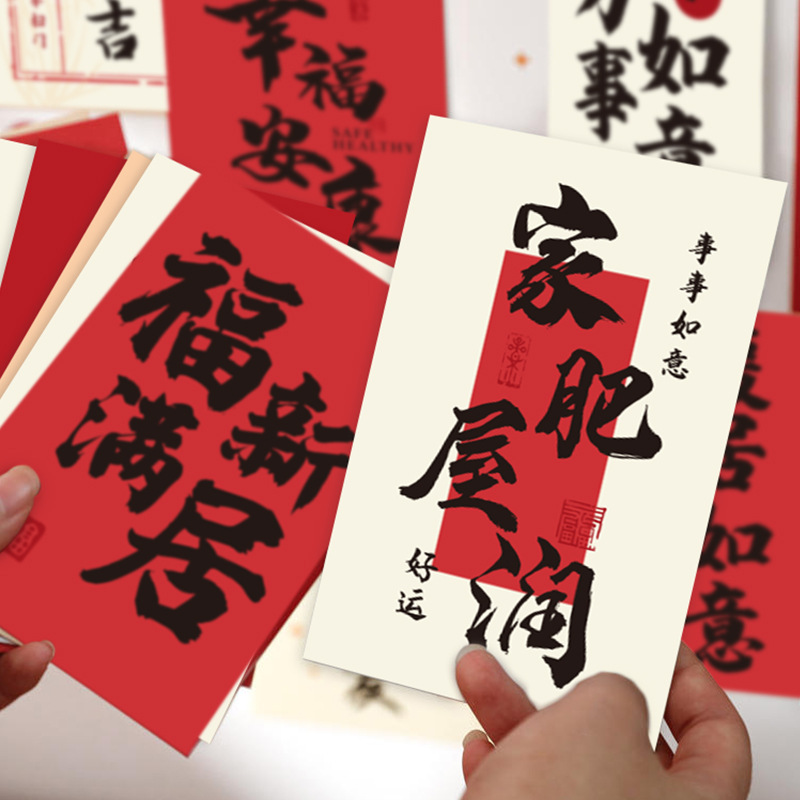 吉
幸福
安康
SAFE
HEALTHY
事
如意
福满新居
家肥屋润
事事如意
好运
居
如意